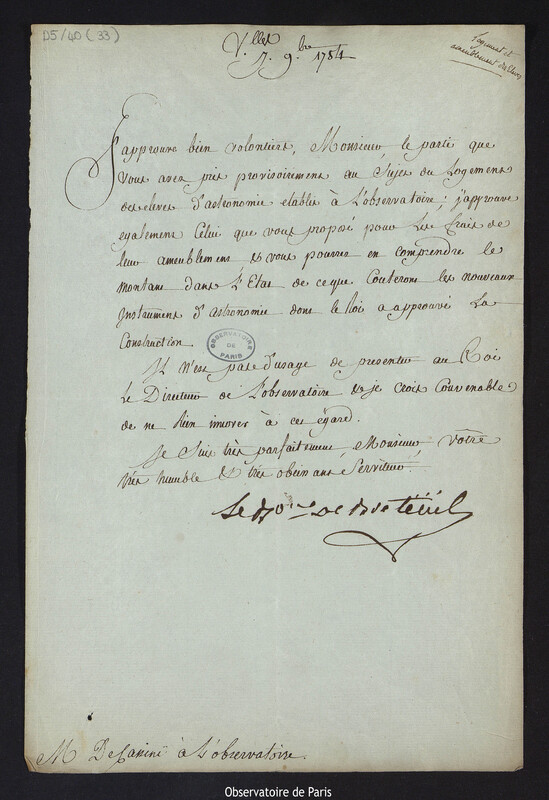 D5/40 (33)
V.lles
7. 9.bre 1784
Logement et
ameublement des Eleves
J'approuve bien volontiers, Monsieur, le parti que
vous avez pris provisoirement au sujet du Logement
des eleves d'astronomie etablis à L'observatoire; j'approuve
egalement Celui que vous proposé pour Les frais de
leur ameublement & vous pourrez en comprendre le
montant dans L'Etat de ce que Couteront les nouveaux
Instrumens d'astronomie dont le Roi a approuvé La
Construction.
OBSERVATOIRE DE PARIS
Il n'est pas d'usage de presenter au Roi
Le Directeur de L'observatoire & je crois Convenable
de ne Rien innover à cet égard.
Je Suis très parfaitement, Monsieur, Votre
très humble & très obeissant Serviteur.
Le Bon De Breteüil
M DeCassini à L'observatoire.
Observatoire de Paris